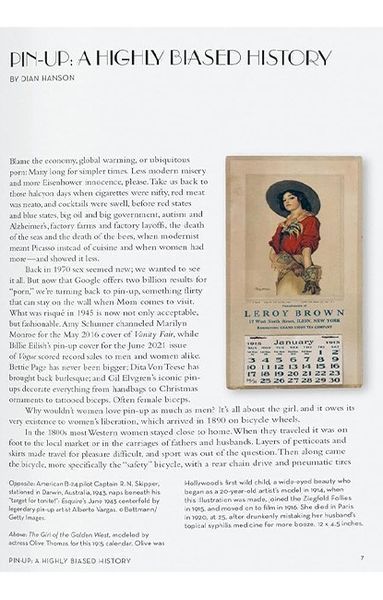 PIN-UP: A HIGHLY BIASED HISTORY
BY DIAN HANSON
Blame the economy, global warming, or ubiquitous
porn: Many long for simpler times. Less modern misery
and more Eisenhower innocence, please. Take us back to
those halcyon days when cigarettes were nifty, red meat
was neato, and cocktails were swell, before red states
and blue states, big oil and big government, autism and
Alzheimer's, factory farms and factory layoffs, the death
of the seas and the death of the bees, when modernist
meant Picasso instead of cuisine and when women had
more—and showed it less.
Back in 1970 sex seemed new; we wanted to see
it all. But now that Google offers two billion results for
"porn," we're turning back to pin-up, something flirty
that can stay on the wall when Mom comes to visit.
What was risqué in 1945 is now not only acceptable,
but fashionable. Amy Schumer channeled Marilyn
Monroe for the May 2016 cover of Vanity Fair, while
Billie Eilish's pin-up cover for the June 2021 issue
of Vogue scored record sales to men and women alike.
Bettie Page has never been bigger; Dita Von Teese has
brought back burlesque; and Gil Elvgren's iconic pin-
ups decorate everything from handbags to Christmas
ornaments to tattooed biceps. Often female biceps.
Why wouldn't women love pin-up as much as men? It's all about the girl, and it owes its
very existence to women's liberation, which arrived in 1890 on bicycle wheels.
In the 1800s most Western women stayed close to home. When they traveled it was on
foot to the local market or in the carriages of fathers and husbands. Layers of petticoats and
skirts made travel for pleasure difficult, and sport was out of the question. Then along came
the bicycle, more specifically the "safety" bicycle, with a rear chain drive and pneumatic tires
LEROY BROWN
17 West North Street, ILION, NEW YORK
Representing GRAND UNION TEA COMPANY
1915 January 1915
1 2
3 4 5 6 7 8 9
10 11 12 13 14 15 16
17 18 19 20 21 22 23
25 26 27 28 29 30
Opposite: American B-24 pilot Captain R. N. Skipper,
stationed in Darwin, Australia, 1943, naps beneath his
"target for tonite!": Esquire's June 1943 centerfold by
legendary pin-up artist Alberto Vargas. © Bettmann/
Getty Images.
Above: The Girl of the Golden West, modeled by
actress Olive Thomas for this 1915 calendar. Olive was
Hollywood's first wild child, a wide-eyed beauty who
began as a 20-year-old artist's model in 1914, when
this illustration was made, joined the Ziegfeld Follies
in 1915, and moved on to film in 1916. She died in Paris
in 1920, at 25, after drunkenly mistaking her husband's
topical syphilis medicine for more booze. 12 x 4.5 inches.
PIN-UP: A HIGHLY BIASED HISTORY
7